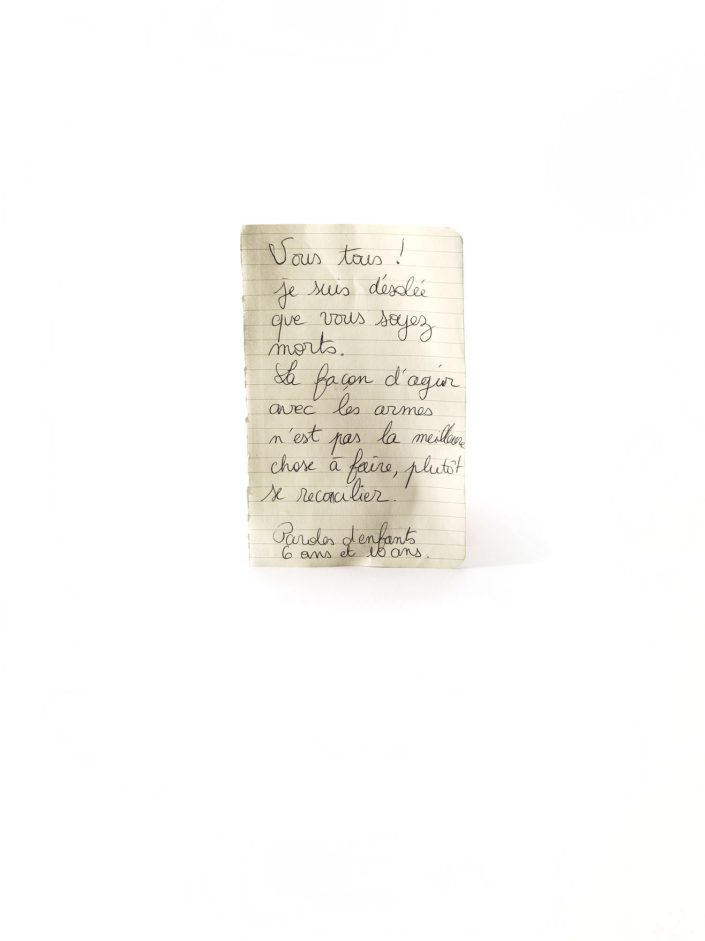 Vous tous !
je suis désolée
que vous soyez
morts.
La façon d'agir
avec les armes
n'est pas la meilleure
chose à faire, plutôt
se reconcilier.
Paroles d'enfants
6 ans et 10 ans.